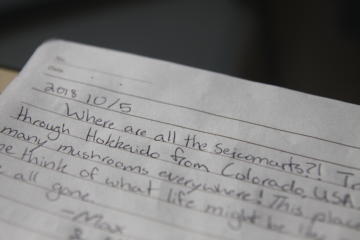 No.
Date
2018 10/5
Where are all the Seicomarts?!
through Hokkaido from Colorado, USA
many mushrooms everywhere! This
me think of what life might be
all gone.
-Max